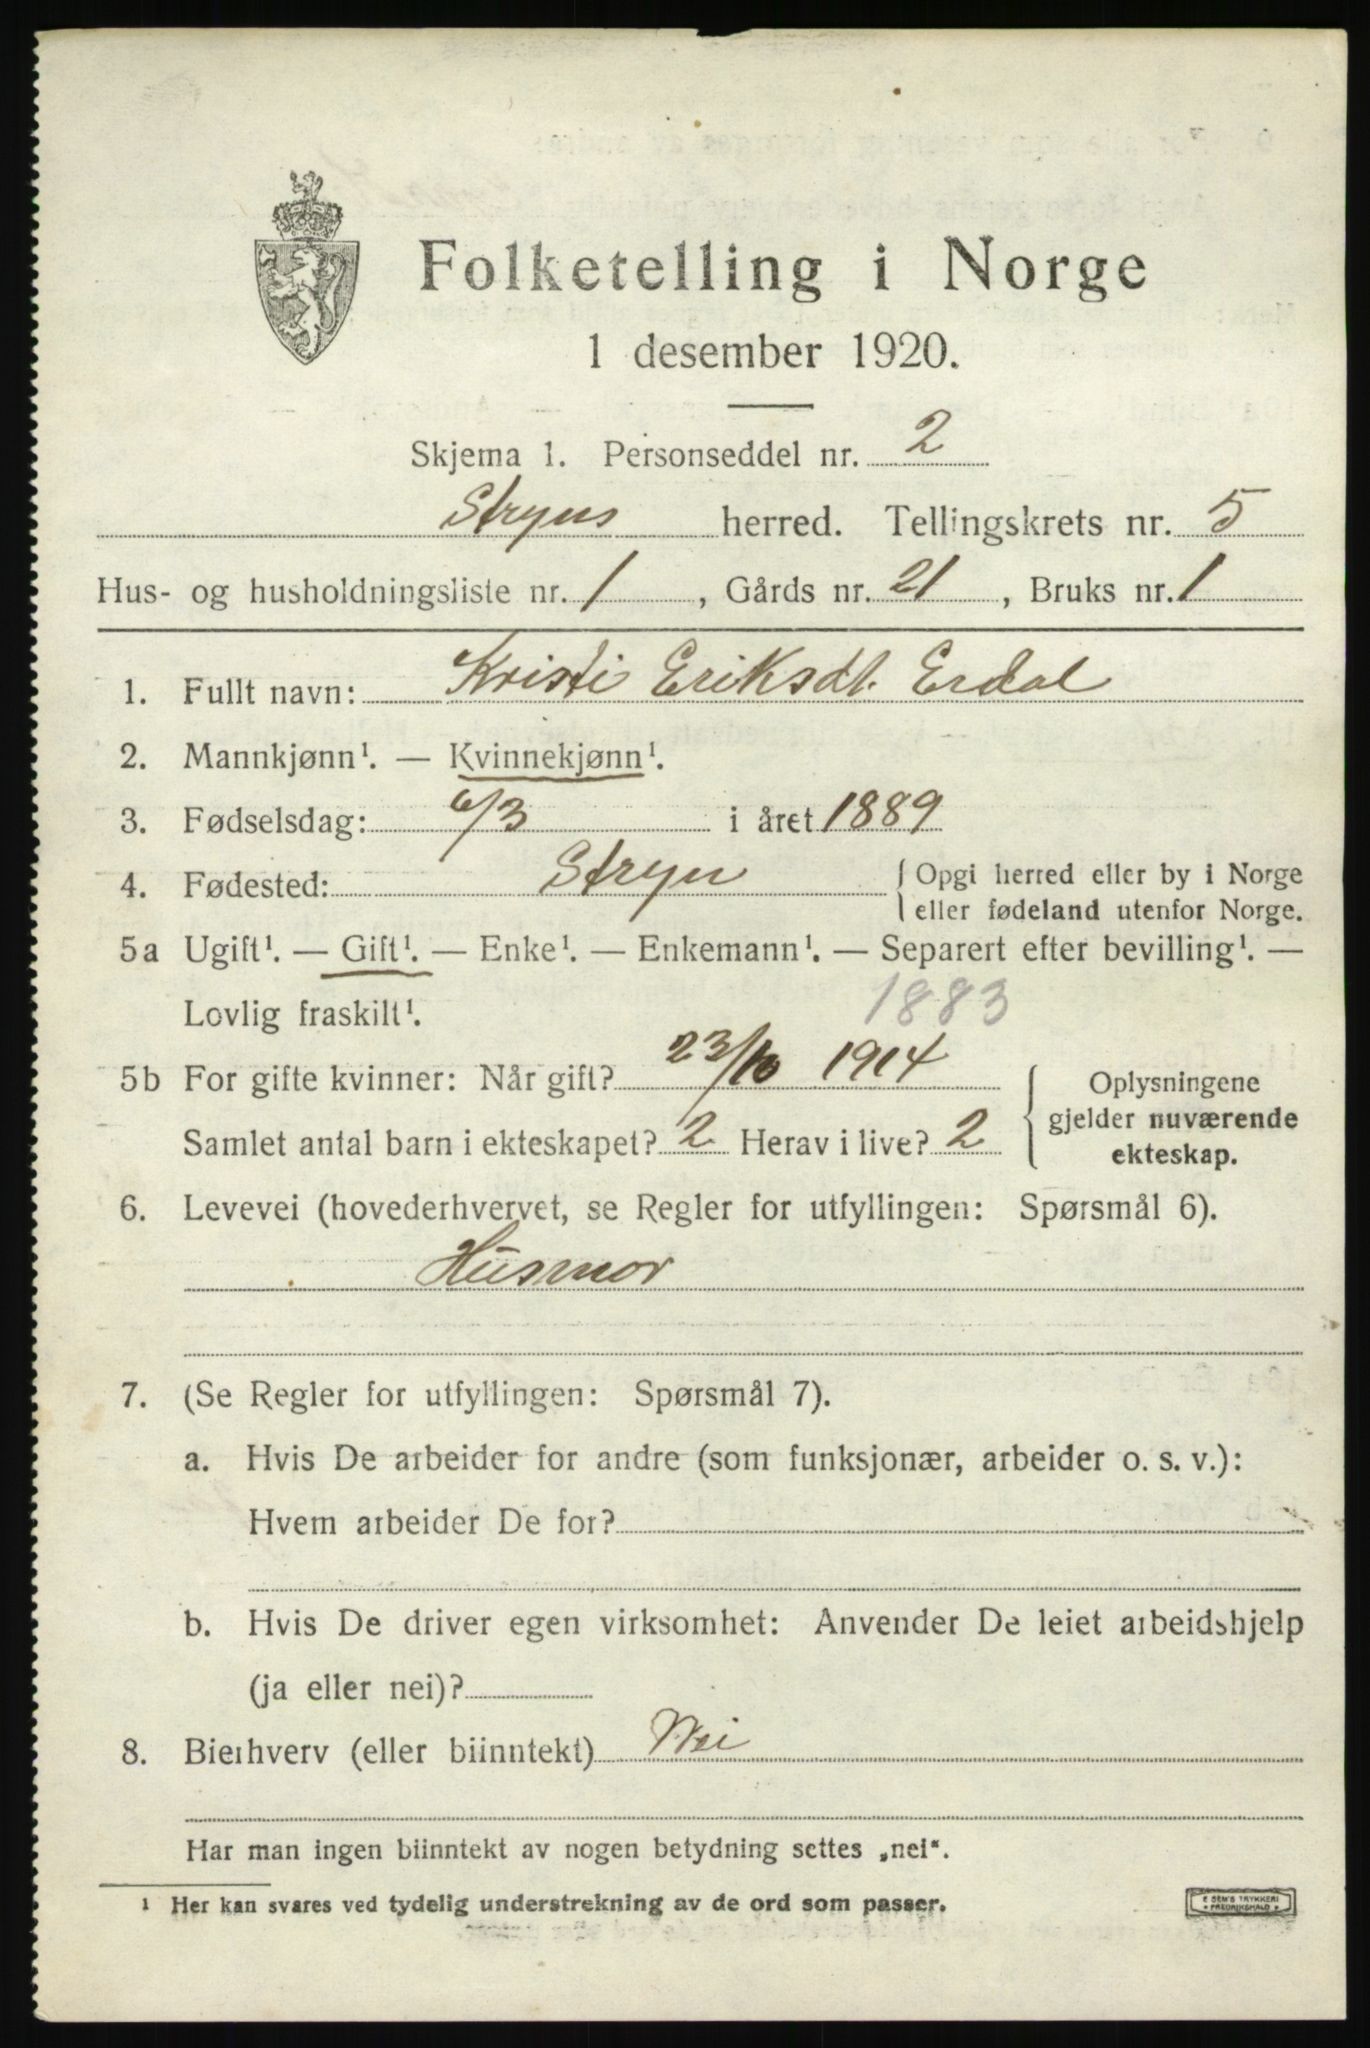 Folketelling i Norge
1 desember 1920.
Skjema 1. Personseddel nr. 2
Stryns herred. Tellingskrets nr. 5
Hus- og husholdningsliste nr. 1, Gårds nr. 21, Bruks nr. 1
1. Fullt navn: Kristi Eriksdt. Erdal
2. Mannkjønn¹. — Kvinnekjønn¹.
3. Fødselsdag: 6/3 i året 1889
4. Fødested: Stryn { Opgi herred eller by i Norge
eller fødeland utenfor Norge.
5a Ugift¹. — Gift¹. — Enke¹. — Enkemann¹. — Separert efter bevilling¹. —
Lovlig fraskilt¹. 1883
5b For gifte kvinner: Når gift? 23/10 1914
Samlet antal barn i ekteskapet? 2 Herav i live? 2
{ Oplysningene
gjelder nuværende
ekteskap.
6. Levevei (hovederhvervet, se Regler for utfyllingen: Spørsmål 6).
Husmor
7. (Se Regler for utfyllingen: Spørsmål 7).
a. Hvis De arbeider for andre (som funksjonær, arbeider o. s. v.):
Hvem arbeider De for?
b. Hvis De driver egen virksomhet: Anvender De leiet arbeidshjelp
(ja eller nei)?
8. Bierhverv (eller biinntekt) Nei
Har man ingen biinntekt av nogen betydning settes „nei“.
¹ Her kan svares ved tydelig understrekning av de ord som passer.
E SEM'S TRYKKERI
FREDRIKSHALD